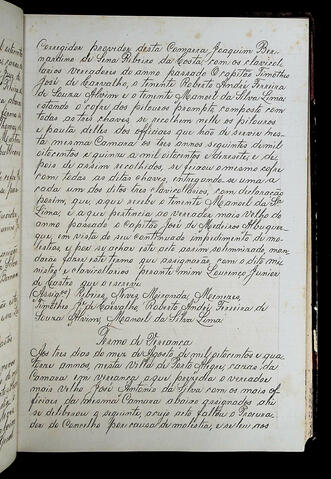 Corregedor prezidex desta Camara Joaquim Ber-
nardino de Sena Ribeiro da Costa, com os clavicul
larios vereadores do anno passado O capitão Timótheo
José de Carvalho, o tenente Roberto André Ferreira
de Souza Alvim e o tenente Manoel da Silva Lima,
estando o cofre dos pilouros prompto composto com
todas as tres chaves, se recolheu nelle os pilouros
e pauta delles dos officiaes que hão de servir nes-
ta mesma Camara os tres annos seguintes de mil
oitocentos e quinse a mil oitocentos e desesete, e de-
pois de assim recolhidos, se feixou o mesmo cofre
com todas as ditas chaves, entregando-se uma a
cada um dos ditos tres clavicularios, com declaração
porém, que, aqui recebe o tenente Manoel da Sª
Lima, é a que pertencia ao vereador mais velho do
anno passado o Capitão José de Medeiros Albuquer-
que, em vista de seu continuado impedimento de mo-
lestias, e por se achar este acto assim solemnizado man-
darão fazer este termo que assignarão com o dito mi-
nistro e clavicularios perante mim Lourenço Junior
de Castro que o escrevi
Assigᵒˢ Ribeiro, Neves, Miranda, Menezes,
Timótheo Jᵉ de Carvalho, Roberto André Ferreira de
Souza Alvim, Manoel da Silva Lima.
Termo de Vereança
Aos tres dias do mez de Agosto de mil oitocentos e qua-
torze annos, nesta Villa de Porto Alegre, cazas da
Camara em vereança a que prezidio o vereador
mais velho José Antonio da Silva com os mais of-
ficiaes da mesma Camara abaixo assignados ahi
se deliberou o seguinte, a cujo acto faltou o Procura-
dor do Concelho por causa de molestia, e se leu nos